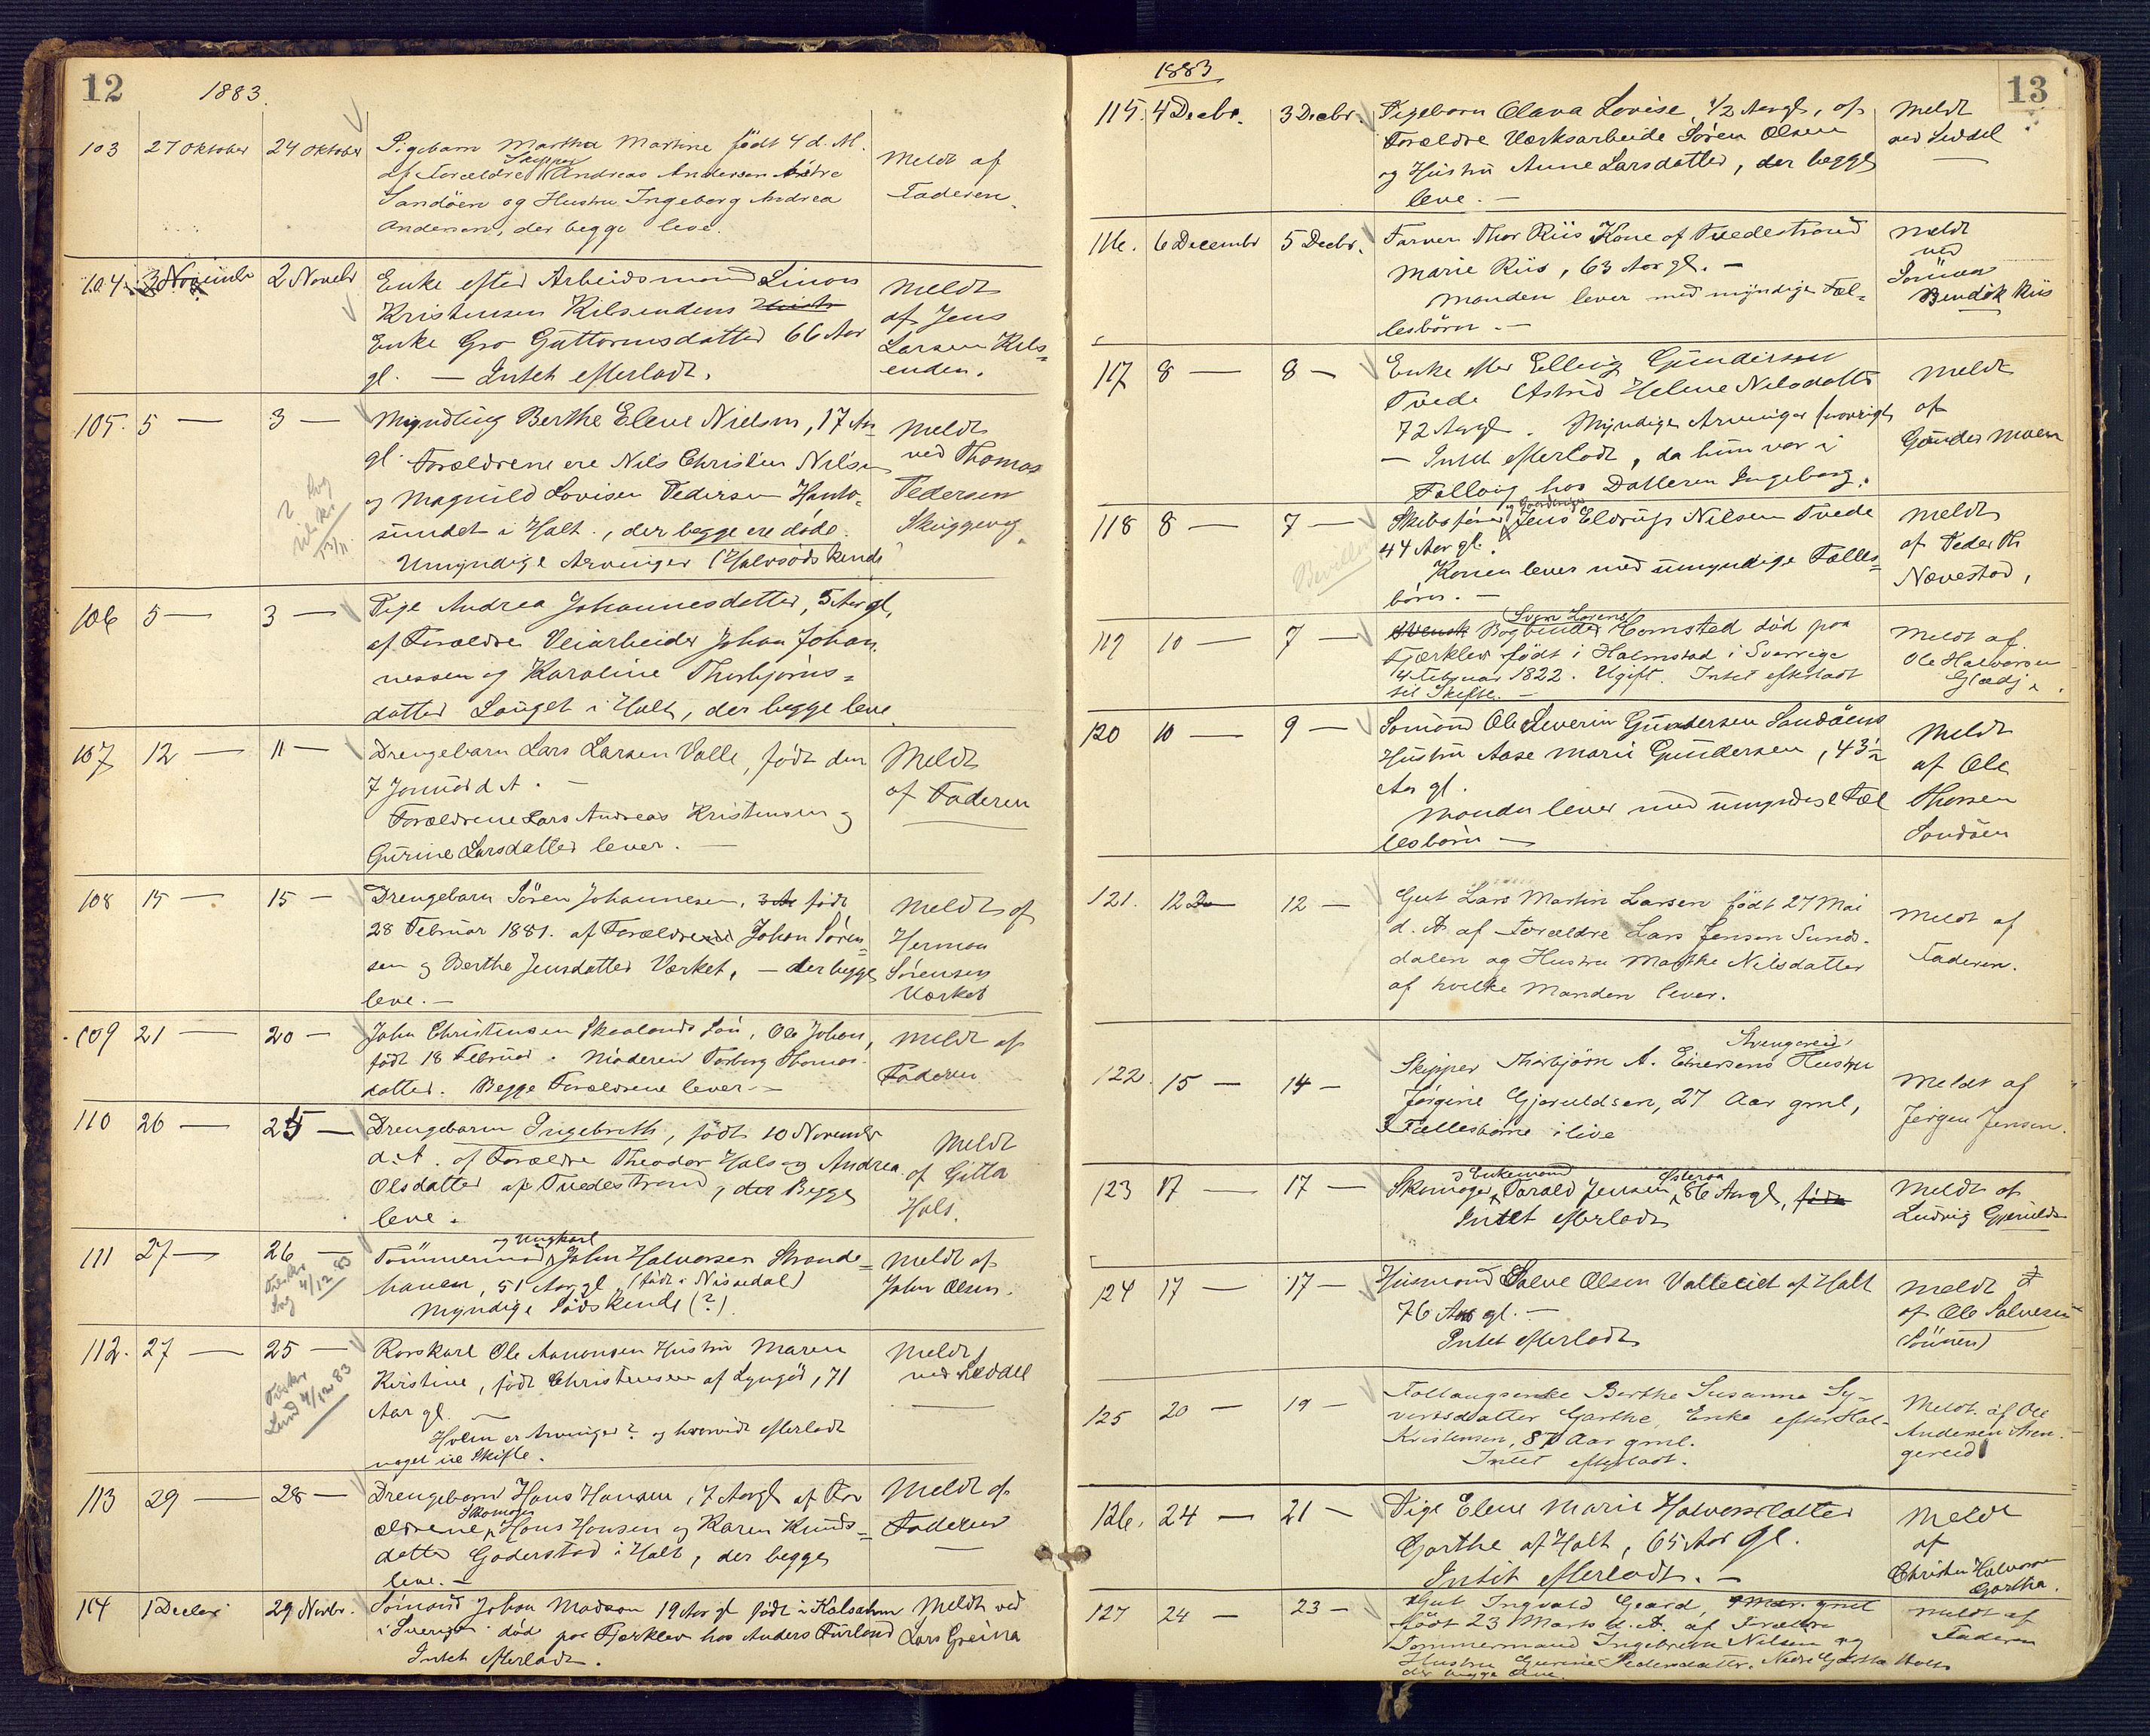 12
1883.
103 27 Oktober 24 Oktober Pigebarn Martha Martine födt 4 d. M. Meldt af
af Forældre Skipper Andreas Andersen Östre Faderen.
Sandöen og Hustru Ingeborg Andrea
Andersen, der begge leve.
104. 3 November 2 Novebr Enke efter Arbeidsmand Simon Meldt
Kristensen Kilsendens af Jens
Enke Gro Guttormsdatter 66 Aar Larsen Kils-
gl. — Intet efterladt. enden.
105. 5 — 3 — Myndling Berthe Elene Nielsen, 17 Aar Meldt
gl. Forældrene ere Nils Christian Nilsen ved Thomas
og Magnild Lovise Pedersen Pedersen
sundet i Holt., der begge ere döde. Skuggevig.
Umyndige Arvinger (Halvsödskende
106 5 — 3 — Pige Andrea Johannesdatter, 5 Aar gl,
af Forældre Veiarbeider Johan Johan-
nessen og Karoline Thorbjörns-
datter Lauget i Holt, der begge leve.
107 12 — 11 — Drengebarn Lars Larsen Valle, födt den Meldt
7 Januar d. A. — af Faderen
Forældrene Lars Andreas Kristensen og
Gurine Larsdatter lever. —
108 15 — 15 — Drengebarn Sören Johannesen, födt Meldt af
28 Februar 1881. af Forældrene Johan Sören- Herman
sen og Berthe Jensdatter Værket, — der begge Sörensen
leve. — Værket
109 21 — 20 — John Christensen Skaalands Sön, Ole Johan, Meldt af
födt 18 Februar. Moderen Torborg Thomas- Faderen
datter. Begge Forældrene lever —
110 26 — 25 — Drengebarn Ingebreth, födt 10 November Meldt
d. A. af Forældre Theodor Hals og Andrea af Gitta
Olsdatter af Tvedestrand, der Begge Hals.
leve.
111 27 — 26 — Tömmermand og Ungkarl John Halvorsen Strande- Meldt af
4/12 83
haven, 51 Aar gl. (födt i Nissedal) John Olsen.
Myndige Södskende (?).
112. 27 — 25 — Rorskarl Ole Aanonsen Hustru Maren Meldt
4/12 83
Kirstine, födt Christensen af Lyngör, 71 ved Seddel
Aar gl.
Hvem er Arvinger? og hvorvidt efterladt
noget til Skifte.
113 29 — 28 — Drengebarn Hans Hansen, 7 Aar gl af For Meldt af
ældrene Skomager Hans Hansen og Karen Knuds- Faderen
datter Goderstad i Holt, der begge
leve. —
114 1 Decbr 29 Novbr. Sömand Johan Madson 19 Aar gl födt i Meldt ved
i Sverige död paa Fjærklev hos Anders Lars
Intet efterladt.
13
1883
115. 4 Decbr. 3 Decbr. Pigebarn Olava Lovise, 1/2 Aar gl, af Meldt
Forældre Værksarbeide Sören Olsen ved Seddel
og Hustru Anne Larsdatter, der begge
leve. —
116. 6 Decembr 5 Decbr. Farver Thor Riis Kone af Tvedestrand Meldt
Marie Riis, 63 Aar gl. — ved
Manden lever med myndige Fæl- Sönnen
lesbörn. — Bendik Riis
117 8 — 8 — Enke efter Ellevg Gundersen Meldt
Tvede Astrid Helene Nilsdatter af
72 Aar gl. Myndige Arvinger Gunder Moen
— Intet efterladt, da hun var i
Follaug hos Datteren Ingeborg.
118 8 — 7 — Skibsförer Jens Eldrup Nilsen Tvede Meldt
44 Aar gl. af Peder Th
Konen lever med umyndige Fælles- Nævestad.
börn. —
119 10 — 7 — Bogbinder Sven Lorens Comsted död paa Meldt af
Fjærklev födt i Halmstad i Sverrige Ole Halvorsen
14 Februar 1822. Ugift. Intet efterladt
til Skifte. —
120 10 — 9 — Sömand Ole Severin Gundersen Sandöens Meldt
Hustru Aase Marie Gundersen, 43 1/2 af Ole
Aar gl. Thorsen
Manden lever med umyndige Fæl Sandöen
lesbörn —
121. 12 12 — Gut Lars Martin Larsen födt 27 Mai Meldt af
d. A af Forældre Lars Jensen Sunds- Faderen.
dalen og Hustru Marthe Nilsdatter
af hvilke Manden lever.
Strengereid
122. 15 — 14 — Skipper Thorbjörn A. Einersens Hustru Meldt af
Jörgine Gjeruldsen, 27 Aar gml, Jörgen Jensen.
3 Fællesbörne i live
123 17 — 17 — Skomager og Enkemand Tarald Jensen Österaa 86 Aar gl, Meldt af
Intet efterladt Ludvig Gjerulds
124 17 — 17 — Husmand Salve Olsen af Holt Meldt
76 Aar gl. — af Ole Salvesen
Intet efterladt (Sönnen)
125 20 — 19 — Follaugsenke Berthe Susanna Sy- Meldt. af Ole
vertsdatter Garthe, Enke efter Hal- Andersen Stren-
Kristensen, 87 Aar gml. gereid
Intet efterladt.
126. 24 — 21 — Pige Elene Marie Halvorsdatter Meldt
Garthe af Holt, 65 Aar gl. af
Intet efterladt. — Christen Halvorsen
Gartha.
127 24 — 23 — Gut Ingvald Geard, Meldt af
födt 23 Marts d. A. af Forældre Faderen
Tømmermand Ingebreth Nilsen og
Hustru Gurine Pedersdatter. Nedre Garthe Holt
der begge leve.